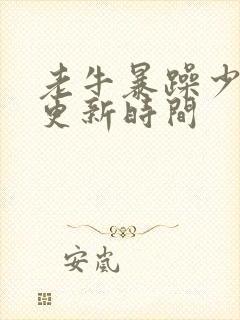 老牛暴躁少
更新時間
安嵐